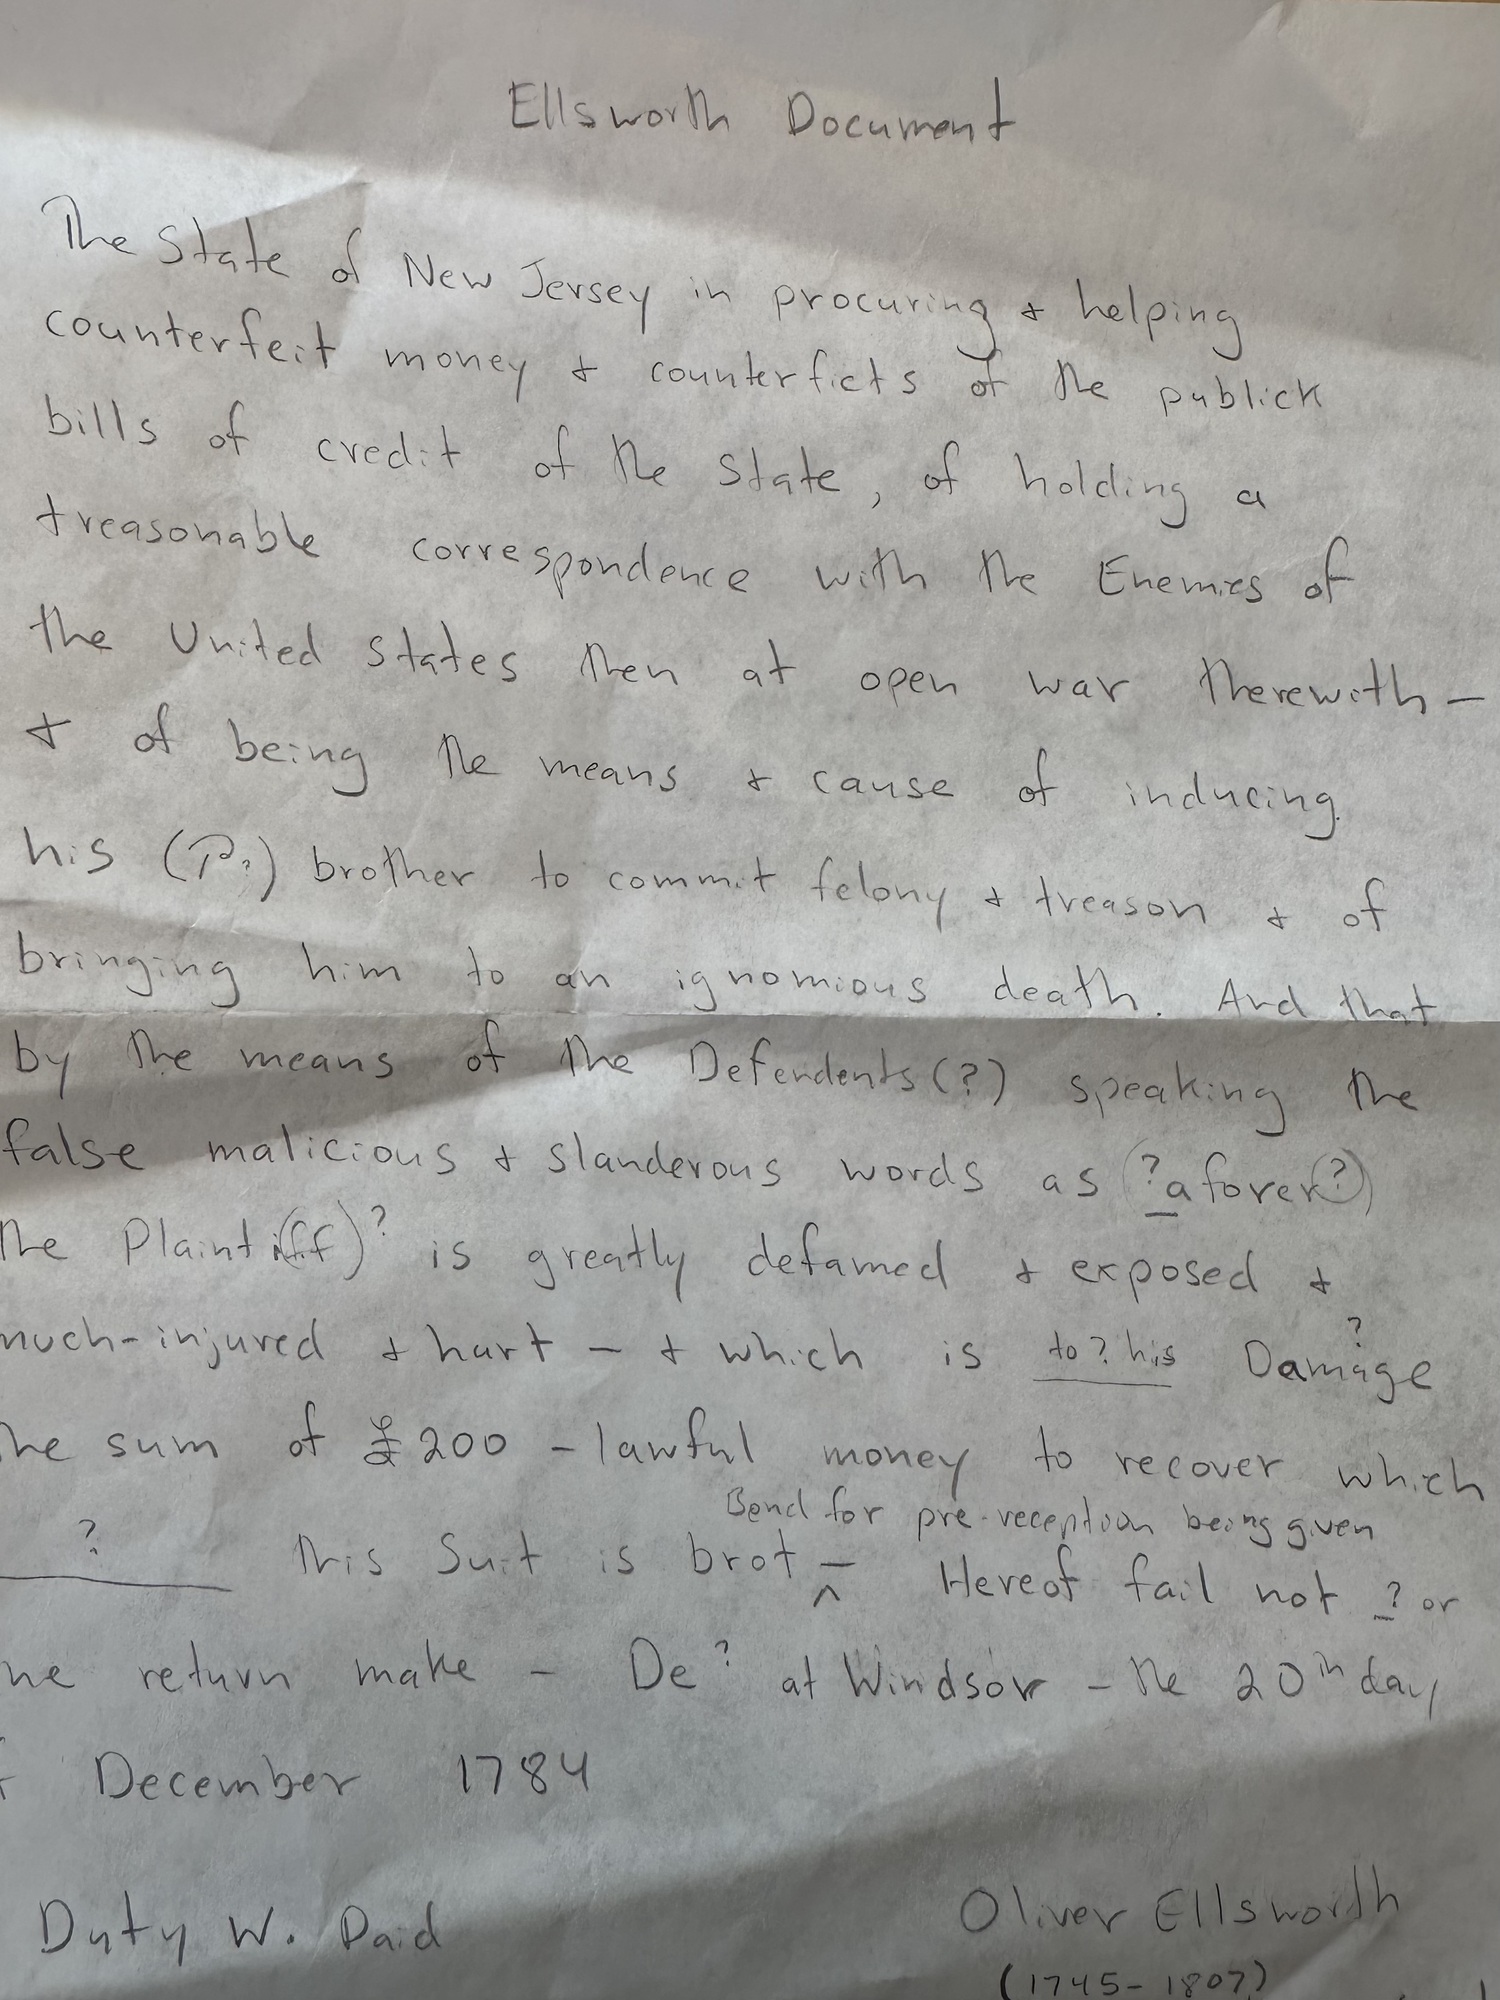 Ellsworth Document
The State of New Jersey in procuring & helping
counterfeit money & counterficts of the publick
bills of credit of the State, of holding a
treasonable correspondence with the Enemies of
the United States then at open war therewith -
& of being the means & cause of inducing
his (P?) brother to commit felony & treason & of
bringing him to an ignomious death. And that
by the means of the Defendents (?) speaking the
false malicious & slanderous words as (? aforer?)
the Plaint(iff)? is greatly defamed & exposed &
much-injured & hurt - & which is to? his Damage ?
he sum of £200 - lawful money to recover which
Bond for pre-reception being given
? This Suit is brot - ^ Hereof fail not ? or
ne return make - De? at Windsor - the 20th day
December 1784
Duty W. Paid
Oliver Ellsworth
(1745-1807)